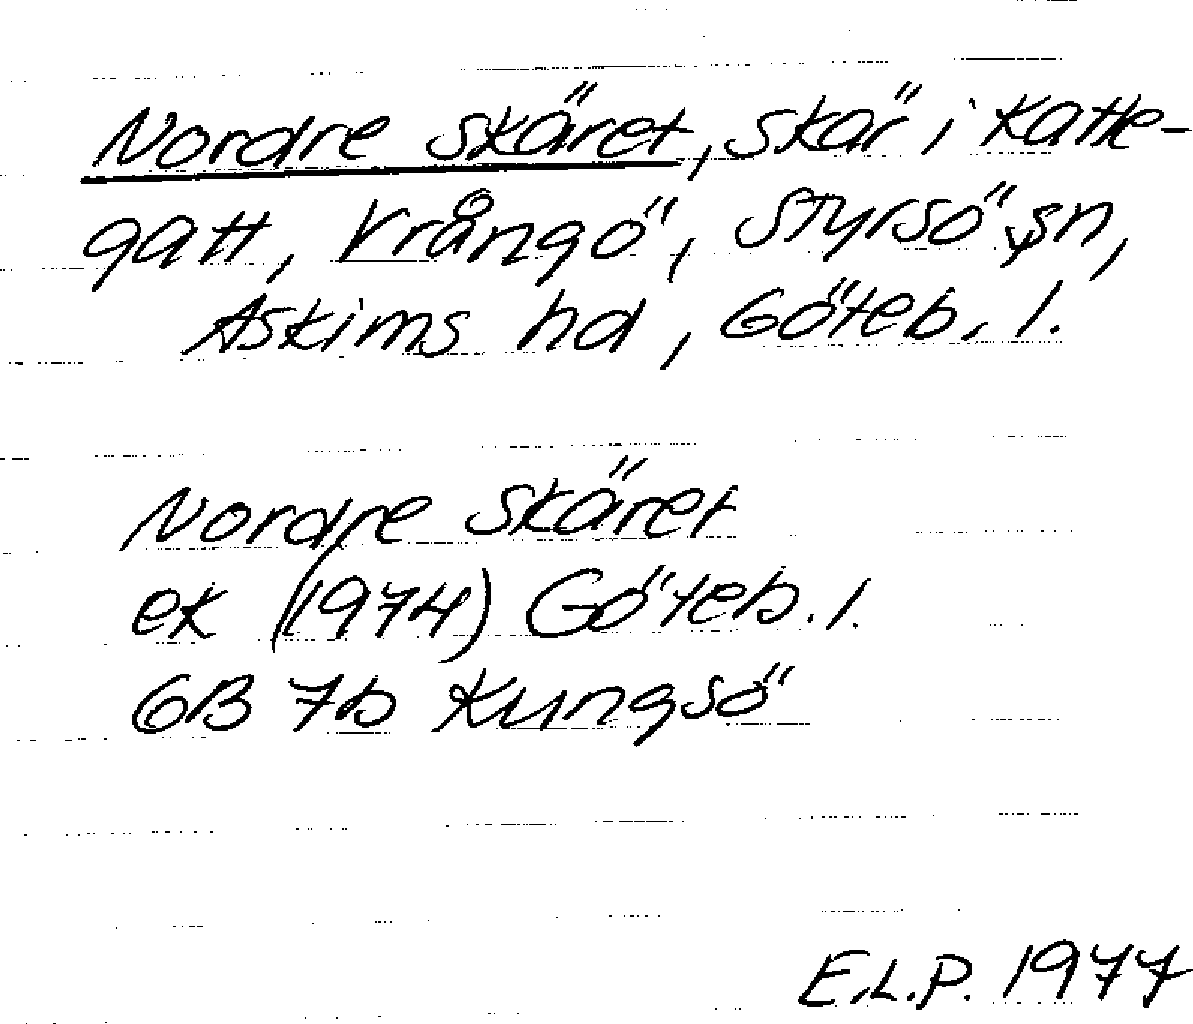 Nordre skäret, skär i Katte-
gatt, Vrångö, Styrsö sn,
Askims hd, Göteb. l.
Nordre Skäret
ek (1974) Göteb. l.
6B 7b Kungsö
E.L.P. 1977